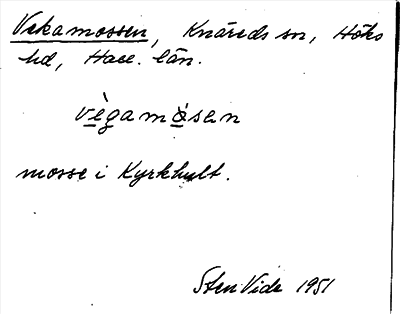 Vekamossen, Knäreds sn, Höks
hd, Hall. län.
vègamåsen
mosse i Kyrkhult.
Sten Vide 1951